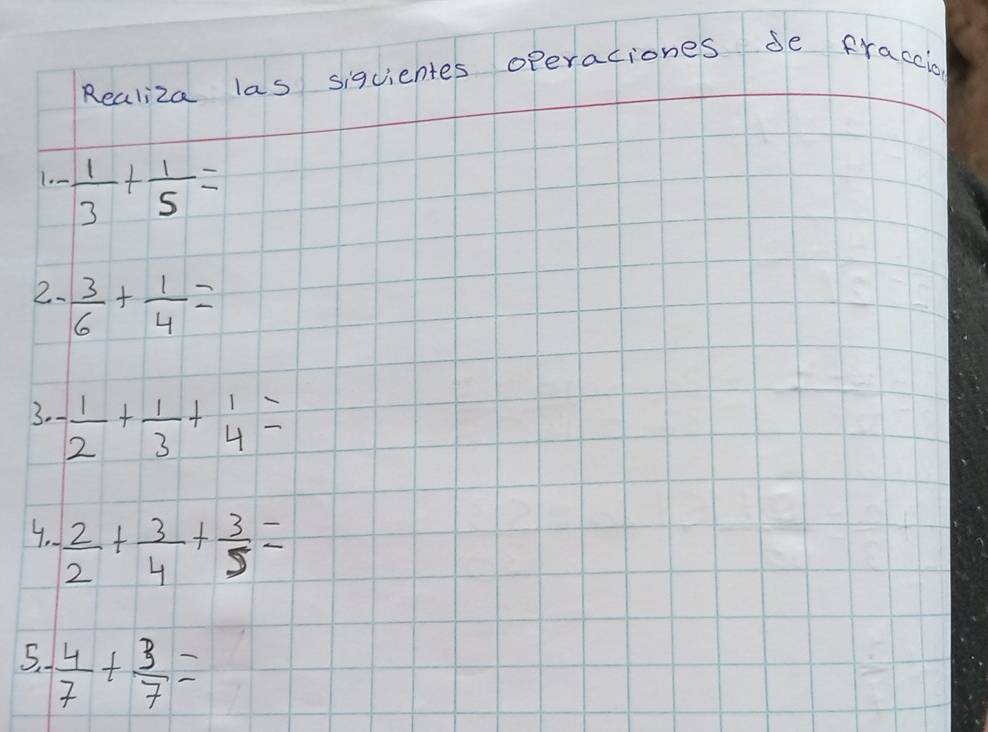 Realiza las siguientes operaciones de fraccion
1.- 1/3 + 1/5 =
2.- 3/6 + 1/4 =
3.- 1/2 + 1/3 + 1/4 =
4.- 2/2 + 3/4 + 3/5 =
5.- 4/7 + 3/7 =